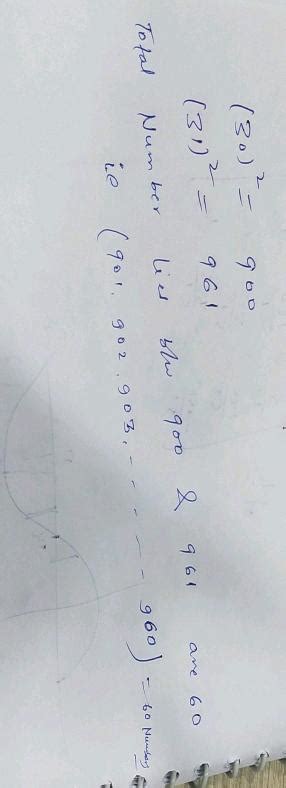 (30)² = 900
(31)² = 961
Total Number lies b/w 900 & 961 are 60
i.e (901, 902, 903, - - - - - - 960) = 60 Numbers